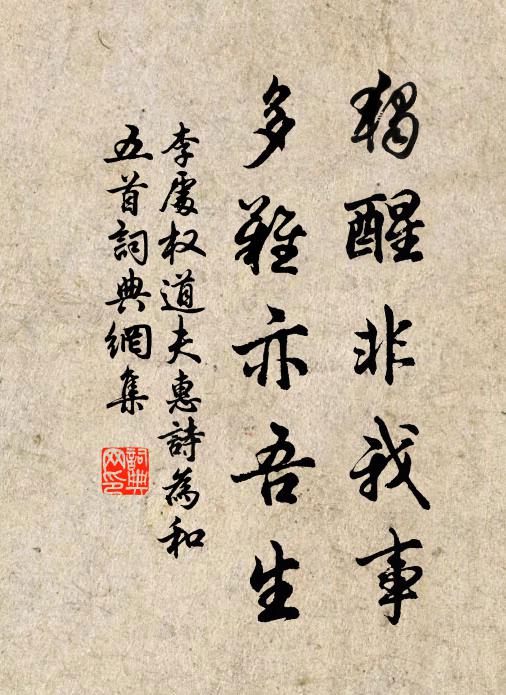 獨醒非我事
多難亦吾生
李處权道夫惠詩為和
五首詞典網集
詞典
网印